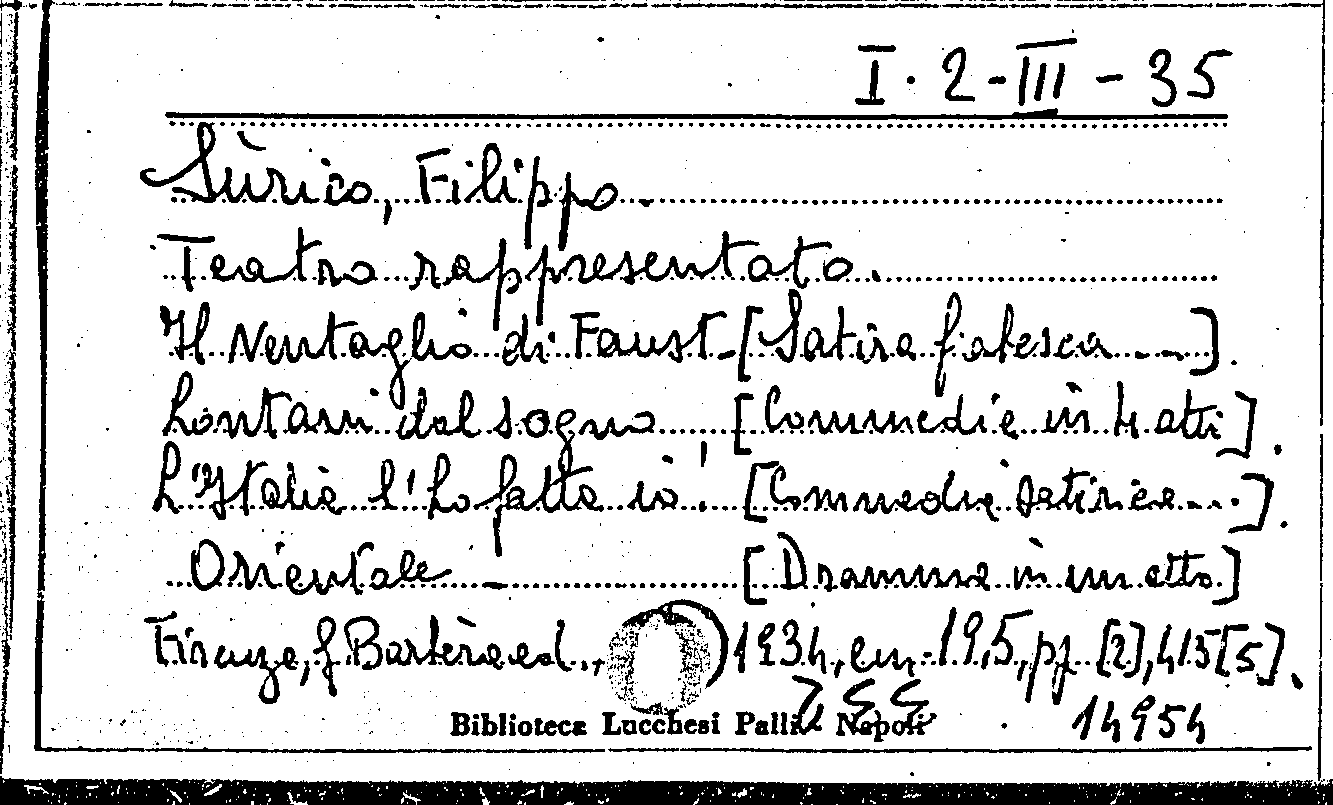 I. 2-III - 35
Sùrico, Filippo.
Teatro rappresentato.
Il Ventaglio di Faust-[Satira fiabesca...].
Lontani dal sogno, [Commedia in 4 atti].
L'Italia l'ho fatta io! [Commedia satirica...].
Orientale - [Dramma in un atto]
Firenze, G. Barbèra ed., 1934, cm. 19,5, pp. [2], 415 [5].
Biblioteca Lucchesi Palli - Napoli
14954